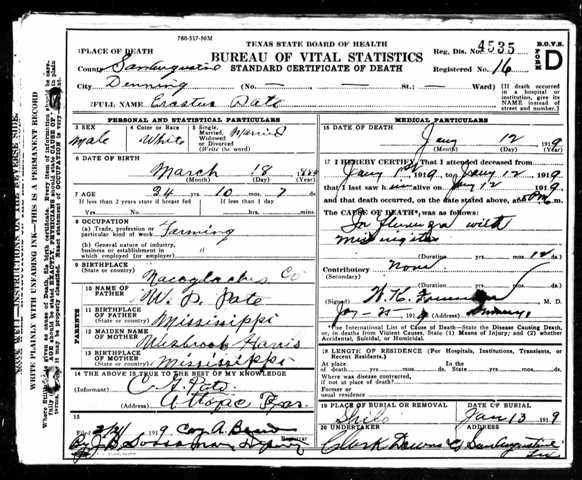 788-517-50M
TEXAS STATE BOARD OF HEALTH
BUREAU OF VITAL STATISTICS
STANDARD CERTIFICATE OF DEATH
Reg. Dis. No. 4535
Registered No. 16
B.O.V.S.
FORM D
1 PLACE OF DEATH
County San Augustine
City Denning (No. — — St.; — Ward)
(If death occurred in a hospital or institution, give its NAME instead of street and number.)
2 FULL NAME Erastus Pate
PERSONAL AND STATISTICAL PARTICULARS
3 SEX
Male
4 Color or Race
White
5 Single, Married, Widowed or Divorced (Write the word)
Married
6 DATE OF BIRTH
March 18
(Month) (Day) (Year)
7 AGE
24 yrs. 10 mos. 7 ds.
If less than 2 years state if breast fed
If less than 1 day
Yes No hrs. min.
8 OCCUPATION
(a) Trade, profession or particular kind of work Farming
(b) General nature of industry, business or establishment in which employed (or employer) "
9 BIRTHPLACE
(State or country) Nacogdoches Co
PARENTS
10 NAME OF FATHER W. D. Pate
11 BIRTHPLACE OF FATHER
(State or country) Mississippi
12 MAIDEN NAME OF MOTHER Harris
13 BIRTHPLACE OF MOTHER
(State or country) Mississippi
14 THE ABOVE IS TRUE TO THE BEST OF MY KNOWLEDGE
(Informant) Pate
(Address) Attoyac Texas
15
Filed 1919
Registrar
Deputy
MEDICAL PARTICULARS
16 DATE OF DEATH
Jany 12 1919
(Month) (Day) (Year)
17 I HEREBY CERTIFY, That I attended deceased from
Jany 1st 1919 to Jany 12 1919
that I last saw him alive on Jany 12 1919
and that death occurred, on the date stated above, at M.
The CAUSE OF DEATH was as follows:
Influenza with
Meningitis
(Duration) yrs. mos. 12 ds.
Contributory None
(Secondary)
(Duration) yrs. mos. ds.
(Signed) M. D.
191 (Address) Denning
*The International List of Cause of Death—State the Disease Causing Death, or, in deaths from Violent Causes, State (1) Means of Injury; and (2) whether Accidental, Suicidal, or Homicidal.
18 LENGTH OF RESIDENCE (For Hospitals, Institutions, Transients, or Recent Residents.)
At place of death yrs. mos. ds. State yrs. mos. ds.
Where was disease contracted, if not at place of death?
Former or usual residence
19 PLACE OF BURIAL OR REMOVAL
Shilo
DATE OF BURIAL
Jan 13 1919
20 UNDERTAKER
Clark Downs
(Address)
San Augustine Tex
WRITE PLAINLY WITH UNFADING INK—THIS IS A PERMANENT RECORD